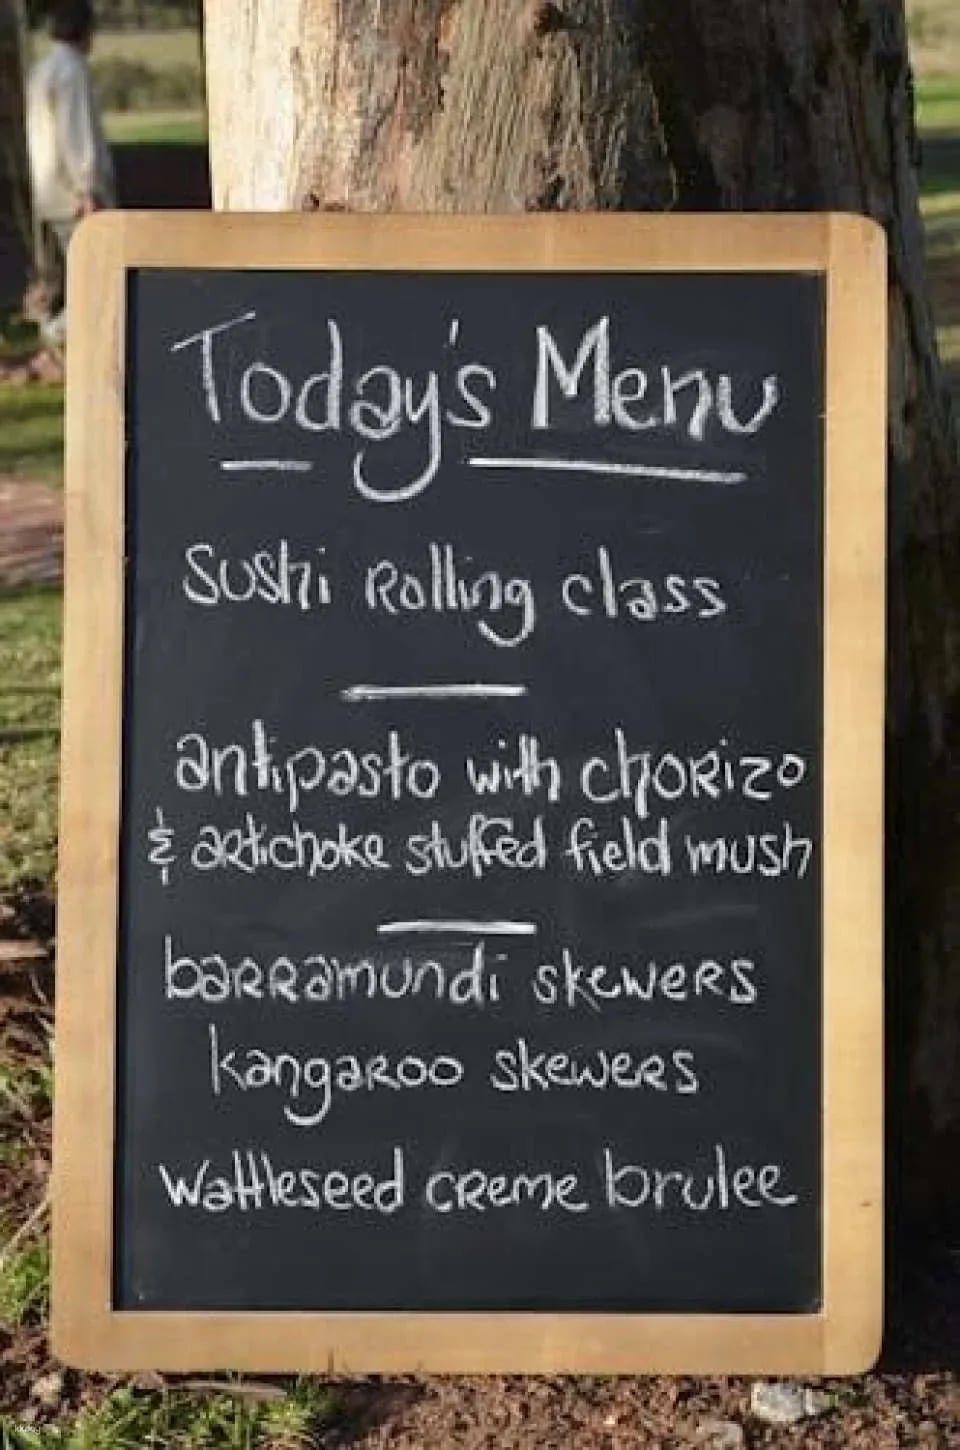 Today's Menu
Sushi Rolling class
antipasto with chorizo
& artichoke stuffed field mush
barramundi skewers
kangaroo skewers
Wattleseed creme brulee